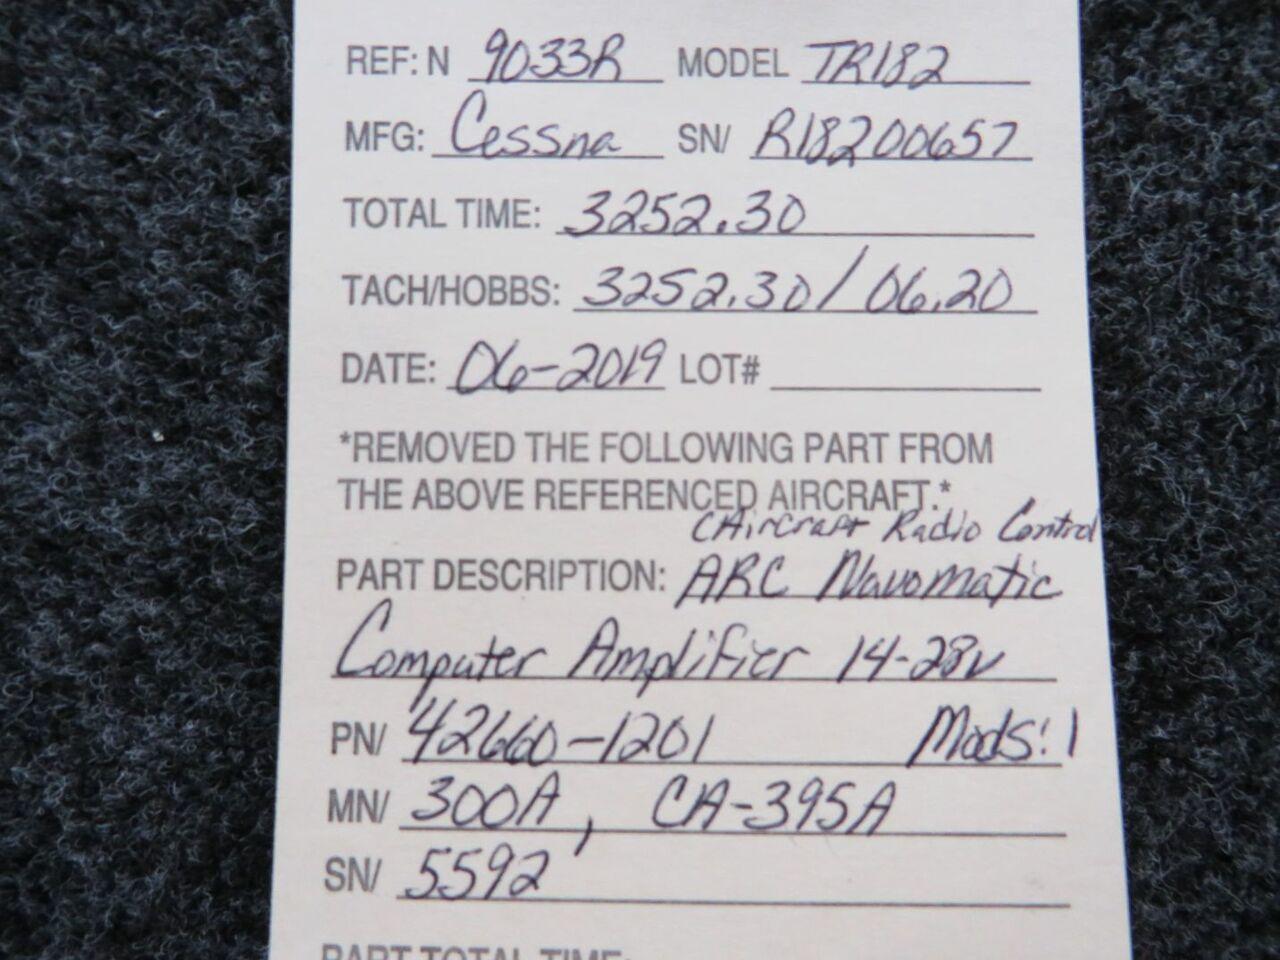 REF: N 9033R MODEL TR182
MFG: Cessna SN/ R18200657
TOTAL TIME: 3252.30
TACH/HOBBS: 3252.30 / 06.20
DATE: 06-2019 LOT#
*REMOVED THE FOLLOWING PART FROM
THE ABOVE REFERENCED AIRCRAFT.*
(Aircraft Radio Control
PART DESCRIPTION: ARC Navomatic
Computer Amplifier 14-28v
PN/ 42660-1201 Mods: 1
MN/ 300A, CA-395A
SN/ 5592
PART TOTAL TIME: